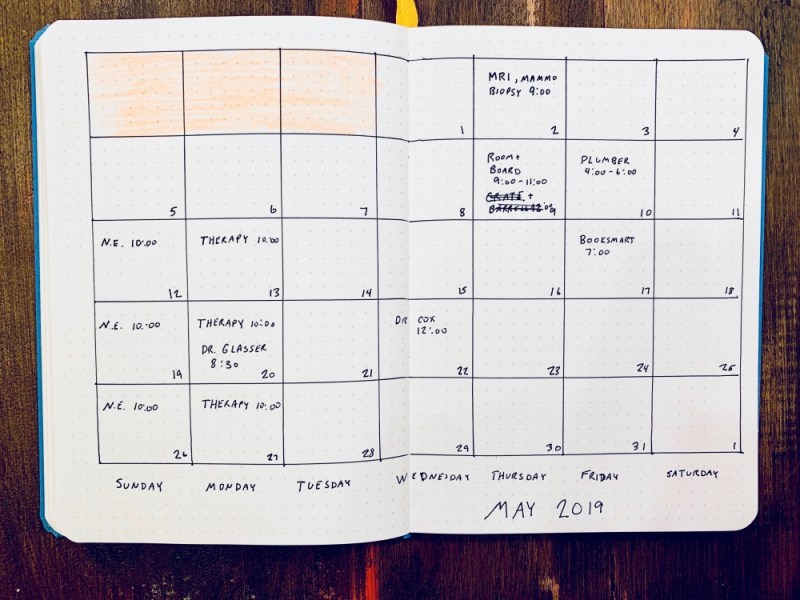 MRI, MAMMO
BIOPSY 9:00
1
2
3
4
ROOM +
BOARD
9:00-11:00
CRATE +
PLUMBER
4:00-6:00
5
6
7
8
9
10
11
N.E. 10:00
THERAPY 10:00
BOOKSMART
7:00
12
13
14
15
16
17
18
N.E. 10:00
THERAPY 10:00
DR. GLASSER
8:30
DR COX
12:00
19
20
21
22
23
24
25
N.E. 10:00
THERAPY 10:00
26
27
28
29
30
31
1
SUNDAY
MONDAY
TUESDAY
WEDNESDAY
THURSDAY
FRIDAY
SATURDAY
MAY 2019